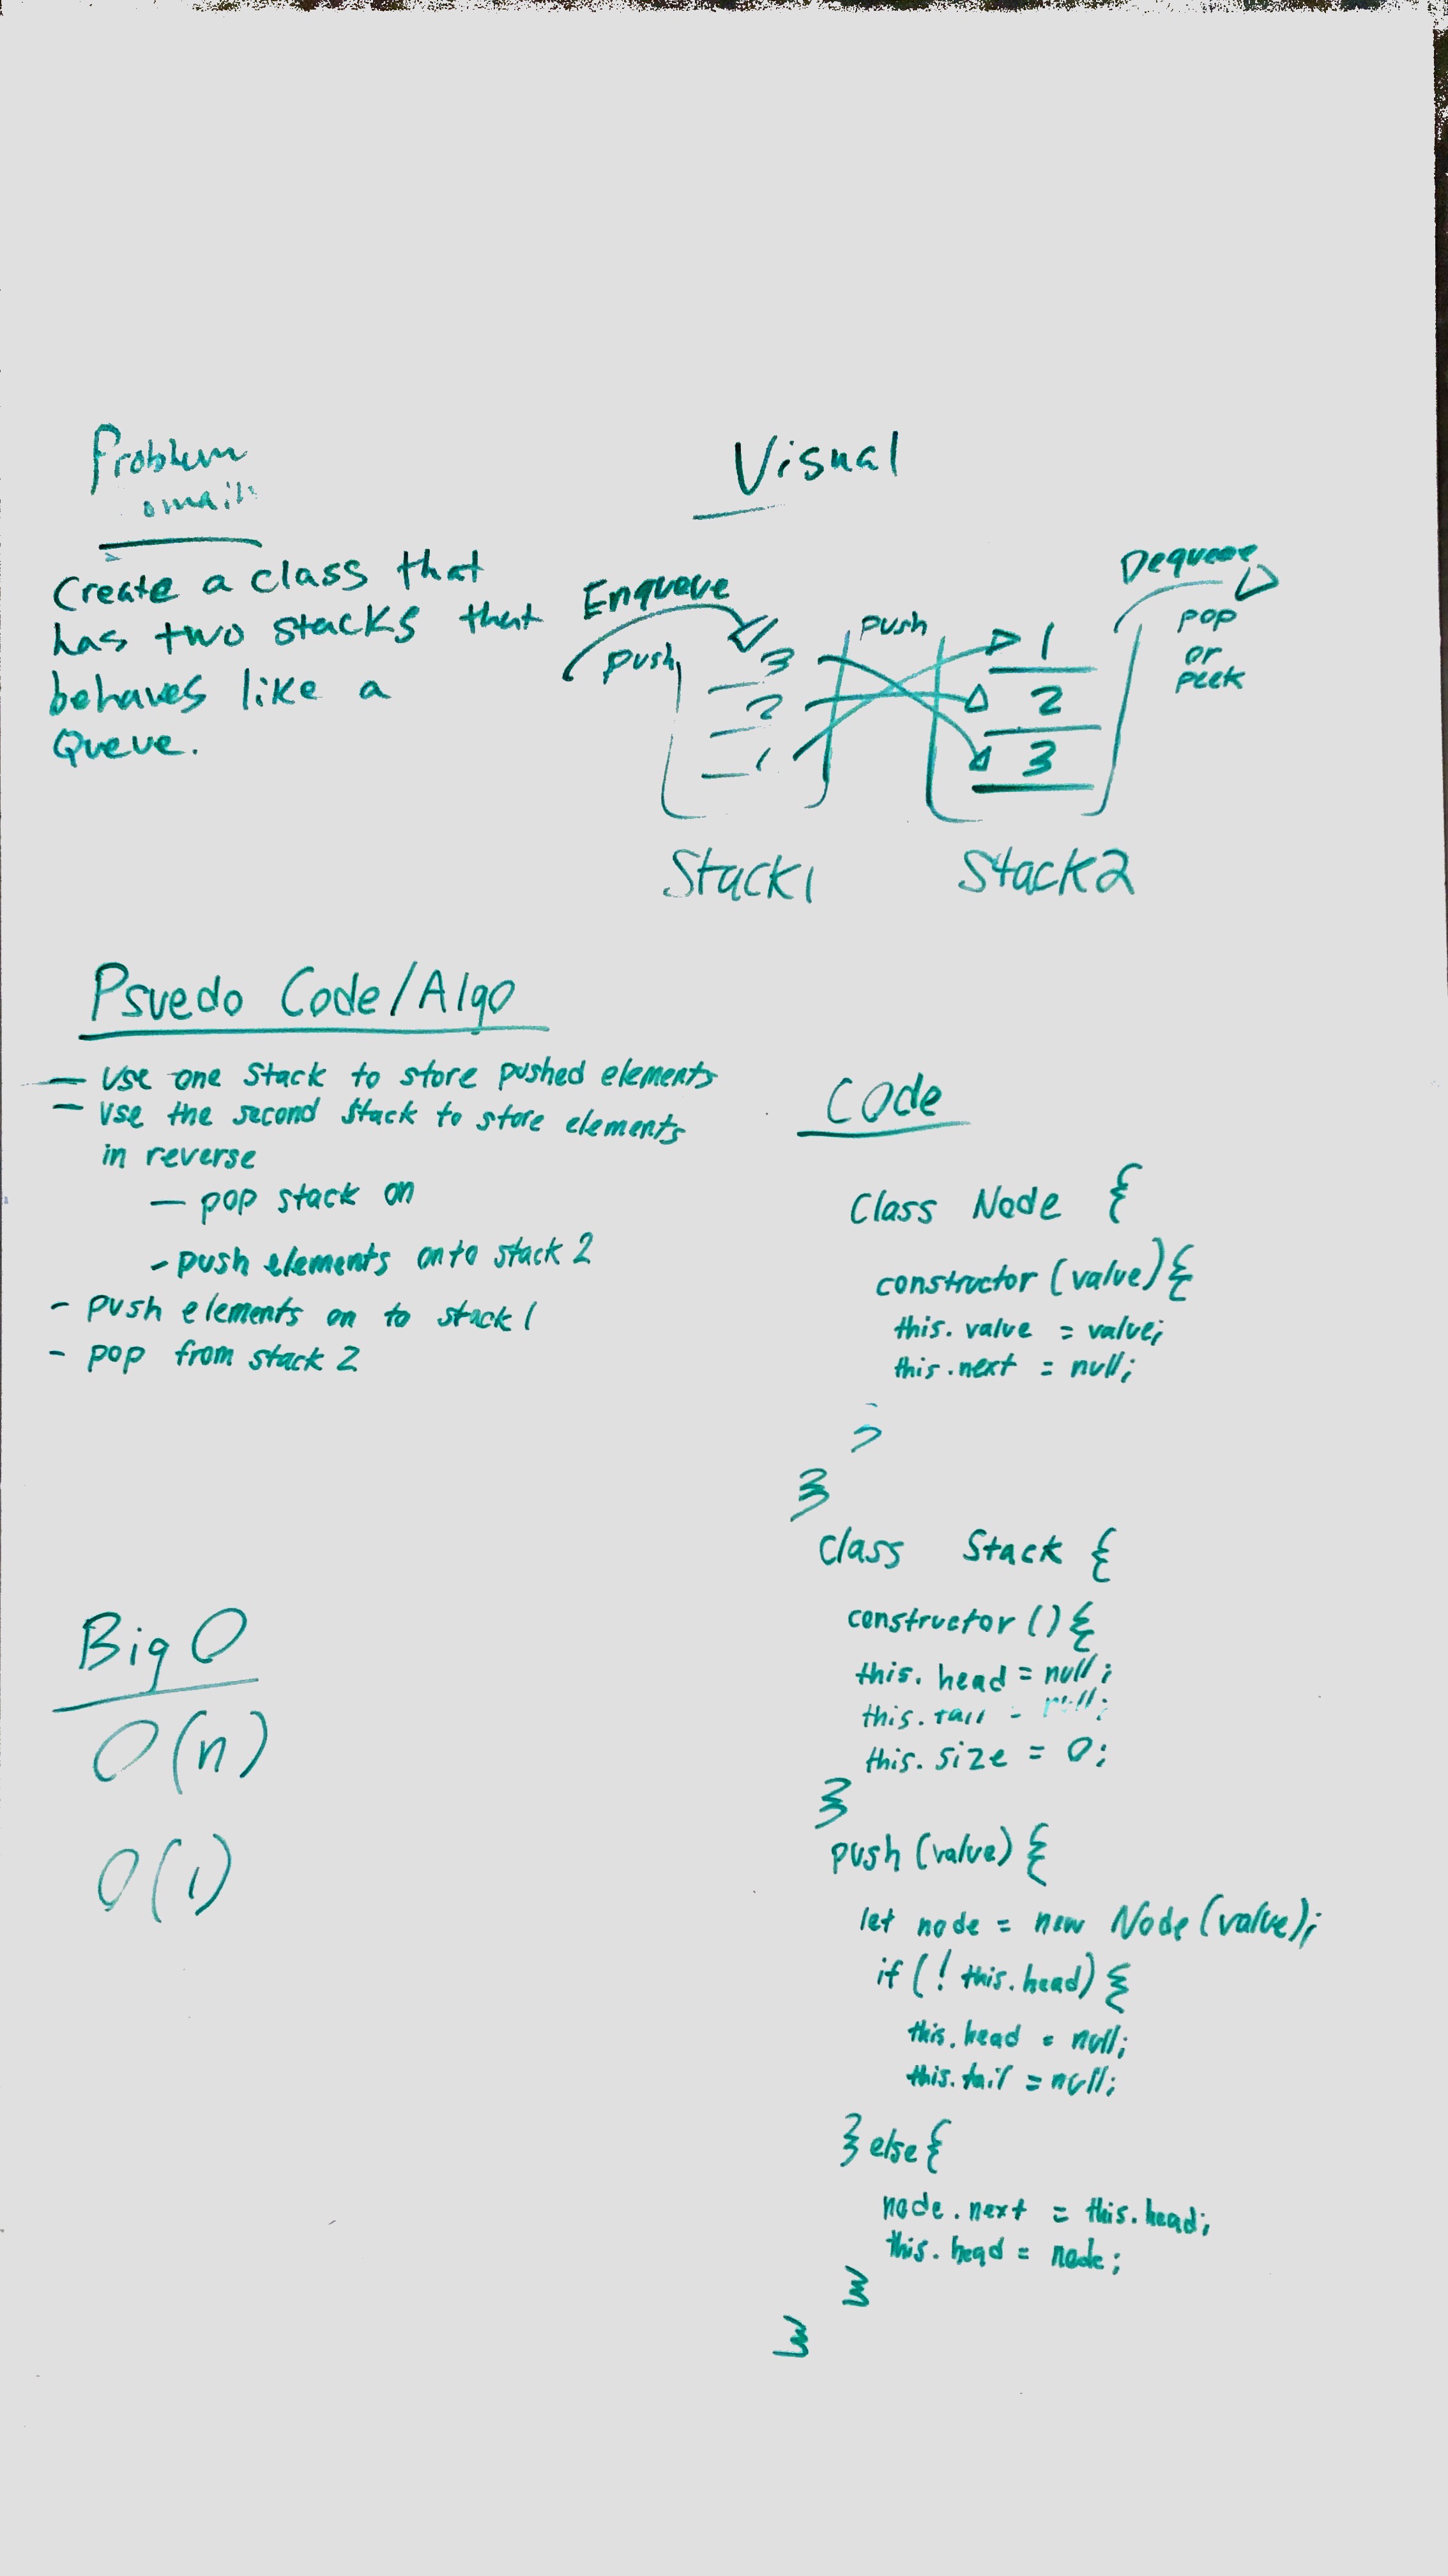 Problem
Create a class that
has two stacks that
behaves like a
Queue.
Visual
Enqueue
push
3
2
1
push
1
2
3
Dequeue
pop
or
peek
Stack1
Stack2
Psuedo Code/Algo
— Use one Stack to store pushed elements
— Use the second Stack to store elements
in reverse
— pop stack on
- push elements onto stack 2
- push elements on to stack 1
- pop from stack 2
Big O
O(n)
O(1)
Code
Class Node {
constructor (value) {
this.value = value;
this.next = null;
}
}
Class Stack {
constructor () {
this.head = null;
this.tail = null;
this.size = 0;
}
push (value) {
let node = new Node (value);
if (! this.head) {
this.head = null;
this.tail = null;
} else {
node.next = this.head;
this.head = node;
}
}